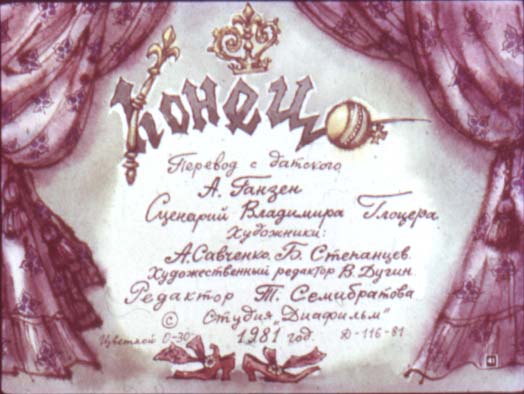 Конец
Перевод с датского
А. Ганзен
Сценарий Владимира Глоцера
Художники:
А. Савченко, Б. Степанцев.
Художественный редактор В. Дугин.
Редактор Т. Семибратова
© Студия „Диафильм"
1981 год. Д-116-81
Цветной 0-30
41